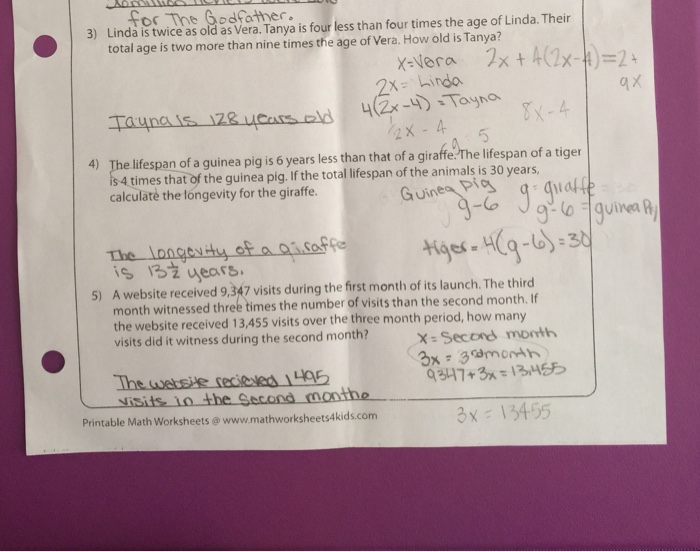 for The Godfather.
3) Linda is twice as old as Vera. Tanya is four less than four times the age of Linda. Their
total age is two more than nine times the age of Vera. How old is Tanya?
x=Vera 2x+4(2x-4)=2+
2x= Linda 9x
4(2x-4)=Tayna
Tayna is 128 years old
8x-4
2x-4
5
4) The lifespan of a guinea pig is 6 years less than that of a giraffe. The lifespan of a tiger
is 4 times that of the guinea pig. If the total lifespan of the animals is 30 years,
calculate the longevity for the giraffe.
Guinea pig g=giraffe
g-6 g-6=guinea
The longevity of a giraffe
tiger=4(g-6)=30
is 13½ years.
5) A website received 9,347 visits during the first month of its launch. The third
month witnessed three times the number of visits than the second month. If
the website received 13,455 visits over the three month period, how many
visits did it witness during the second month?
x=Second month
3x=3rd month
9347+3x=13,455
The website recieved 1495
visits in the second monthe
3x=13455
Printable Math Worksheets @ www.mathworksheets4kids.com